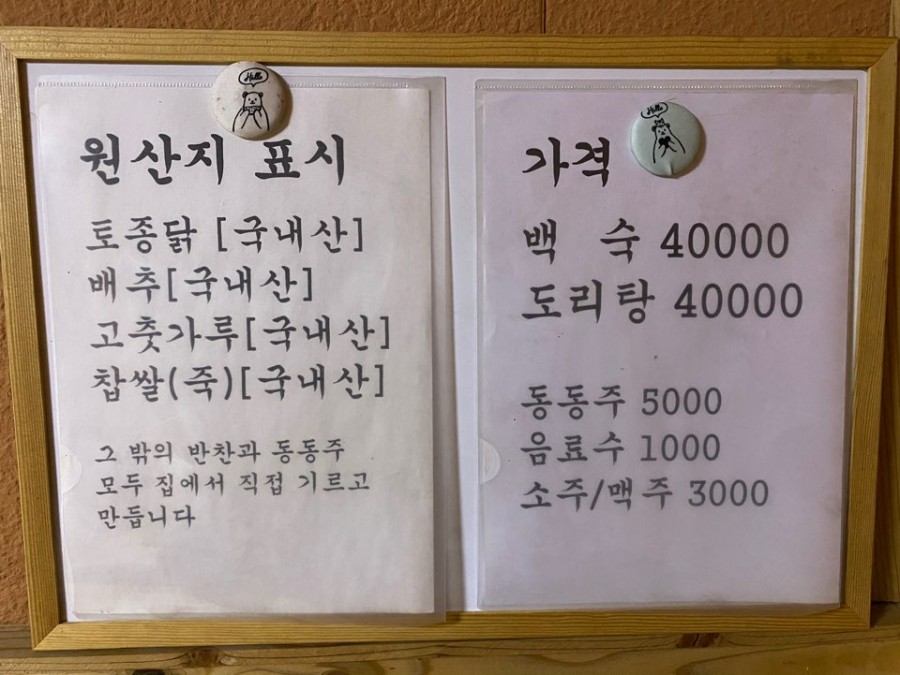 Hello
원산지 표시
토종닭 [국내산]
배추[국내산]
고춧가루[국내산]
찹쌀(죽)[국내산]
그 밖의 반찬과 동동주
모두 집에서 직접 기르고
만듭니다
Hello
가격
백 숙 40000
도리탕 40000
동동주 5000
음료수 1000
소주/맥주 3000